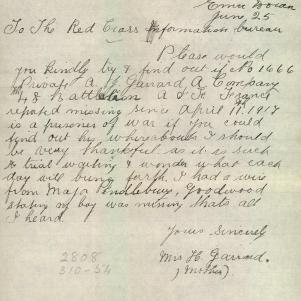 June, 25
To The Red Cross Information bureau
Please would
you kindly try & find out if No 1666
Private A. W. Garrard A. Company
48 Battalain A. I. F. France
repoted missing since April 11. 1917
is a prisoner of war if you could
find out his whereabouts I should
be very thankful as it is such
a trial waiting & wonder what each
day will bring forth. I had a wire
from Major Pendlebury, Goodwood
stating my boy was missing thats all
I heard.
Yours Sincerely
Mrs H. Garrard.
(Mother).
2808
310-54